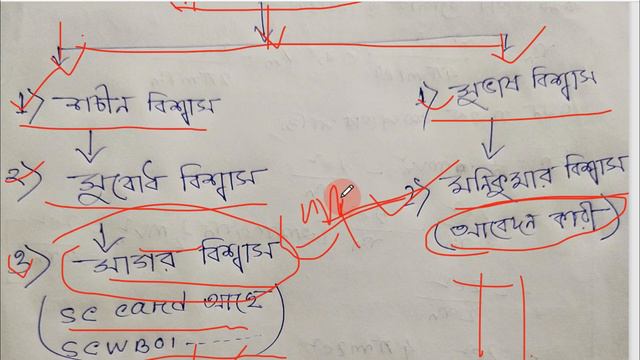 ১) শচীন বিশ্বাস
২) সুবোধ বিশ্বাস
৩) সাগর বিশ্বাস
(SC card আছে
SCWB01-------)
১) সুভাষ বিশ্বাস
২) মনিকুমার বিশ্বাস
(আবেদন কারী)